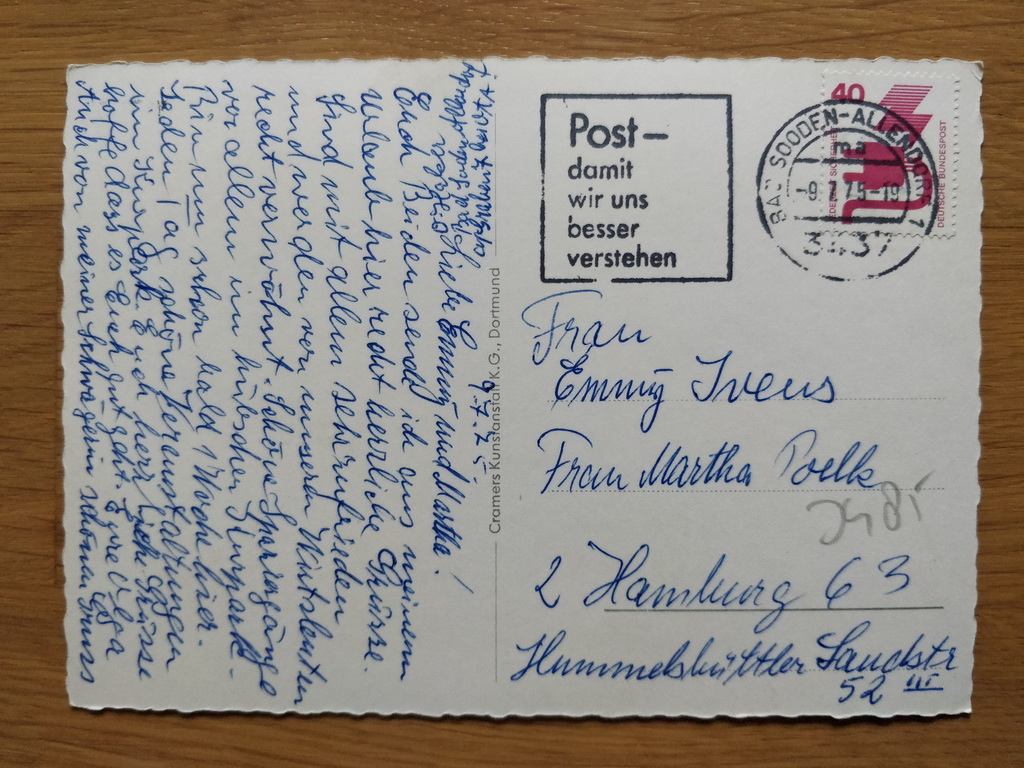 9.7.75.
Liebe Emmy und Martha!
Euch Beiden sende ich aus meinem
Urlaub hier recht herrliche Grüsse.
Sind mit allem sehr zufrieden
und werden von unseren Wirtsleuten
recht verwöhnt. Schöne Spaziergänge
vor allem im hübschen Kurpark.
Bin nun schon bald 1 Woche hier.
Jeden Tag schöne Veranstaltungen
im Kurpark. Euch herzliche Grüsse
hoffe dass es Euch gut geht. Eure Olga
Auch von meiner Schwägerin schönen Gruss
Cramers Kunstanstalt K.G., Dortmund
Post–
damit
wir uns
besser
verstehen
BAD SOODEN-ALLENDORF 1
ma
-9.7.75-19
3437
40
DEUTSCHE BUNDESPOST
Frau
Emmy Ivens
Frau Martha Poelk
2 Hamburg 63
Hummelsbüttler Landstr
52 III